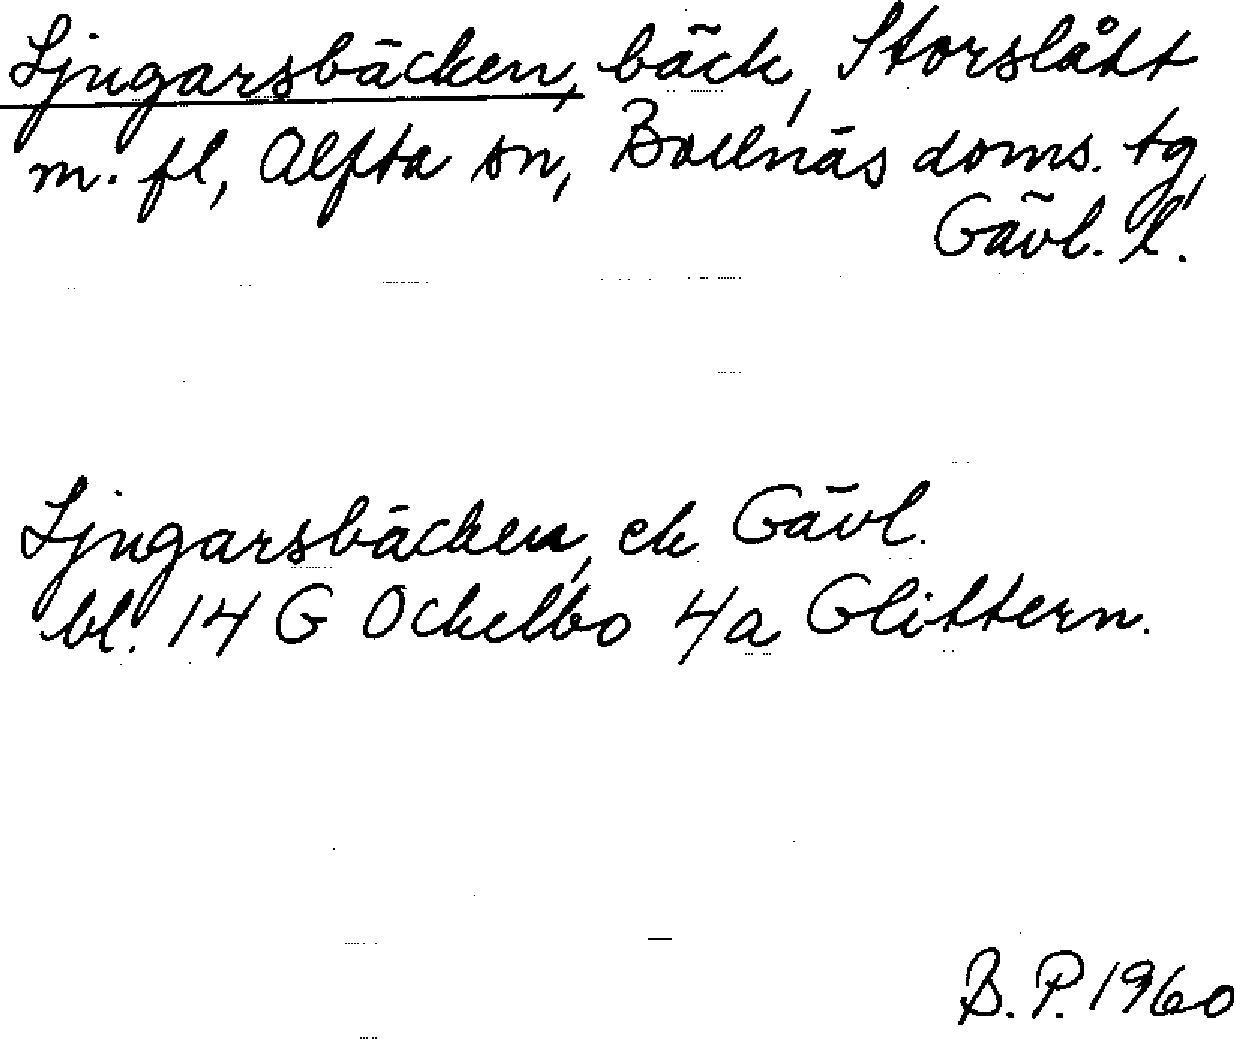 Ljngarsbäcken, bäck, Storslått
m. fl, Alfta sn, Bollnäs doms. tg,
Gävl. l.
Ljngarsbäcken, ek Gävl.
bl. 14 G Ockelbo 4a Glittern.
B. P. 1960